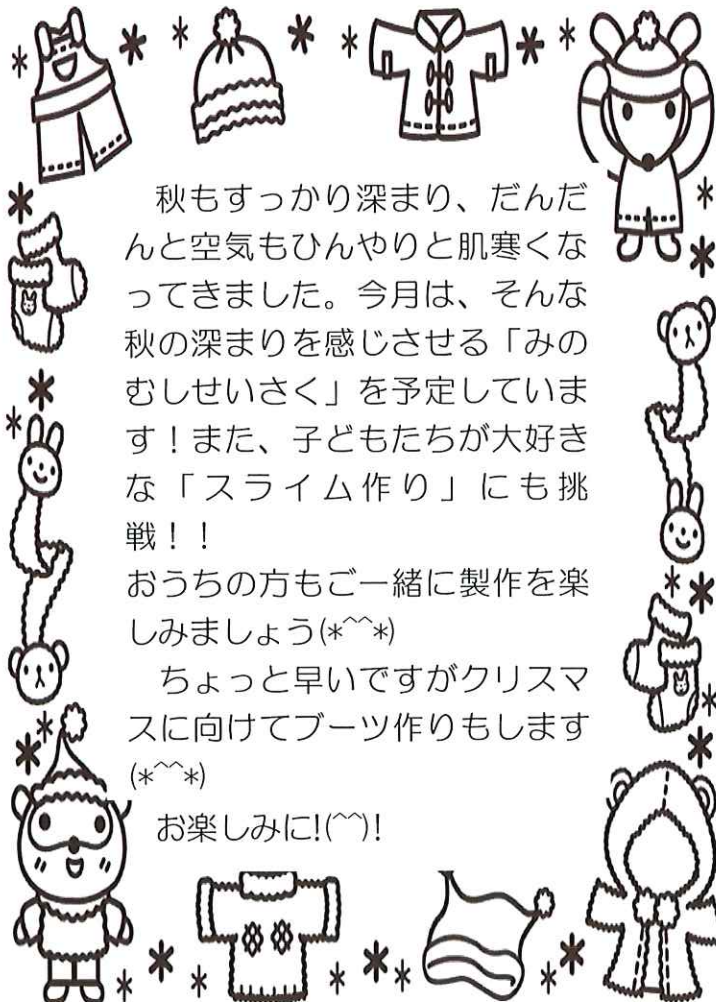 秋もすっかり深まり、だんだ
んと空気もひんやりと肌寒くな
ってきました。今月は、そんな
秋の深まりを感じさせる「みの
むしせいさく」を予定していま
す！また、子どもたちが大好き
な「スライム作り」にも挑
戦！！
おうちの方もご一緒に製作を楽
しみましょう(*^^*)
　ちょっと早いですがクリスマ
スに向けてブーツ作りもします
(*^^*)
　お楽しみに!(^^)!